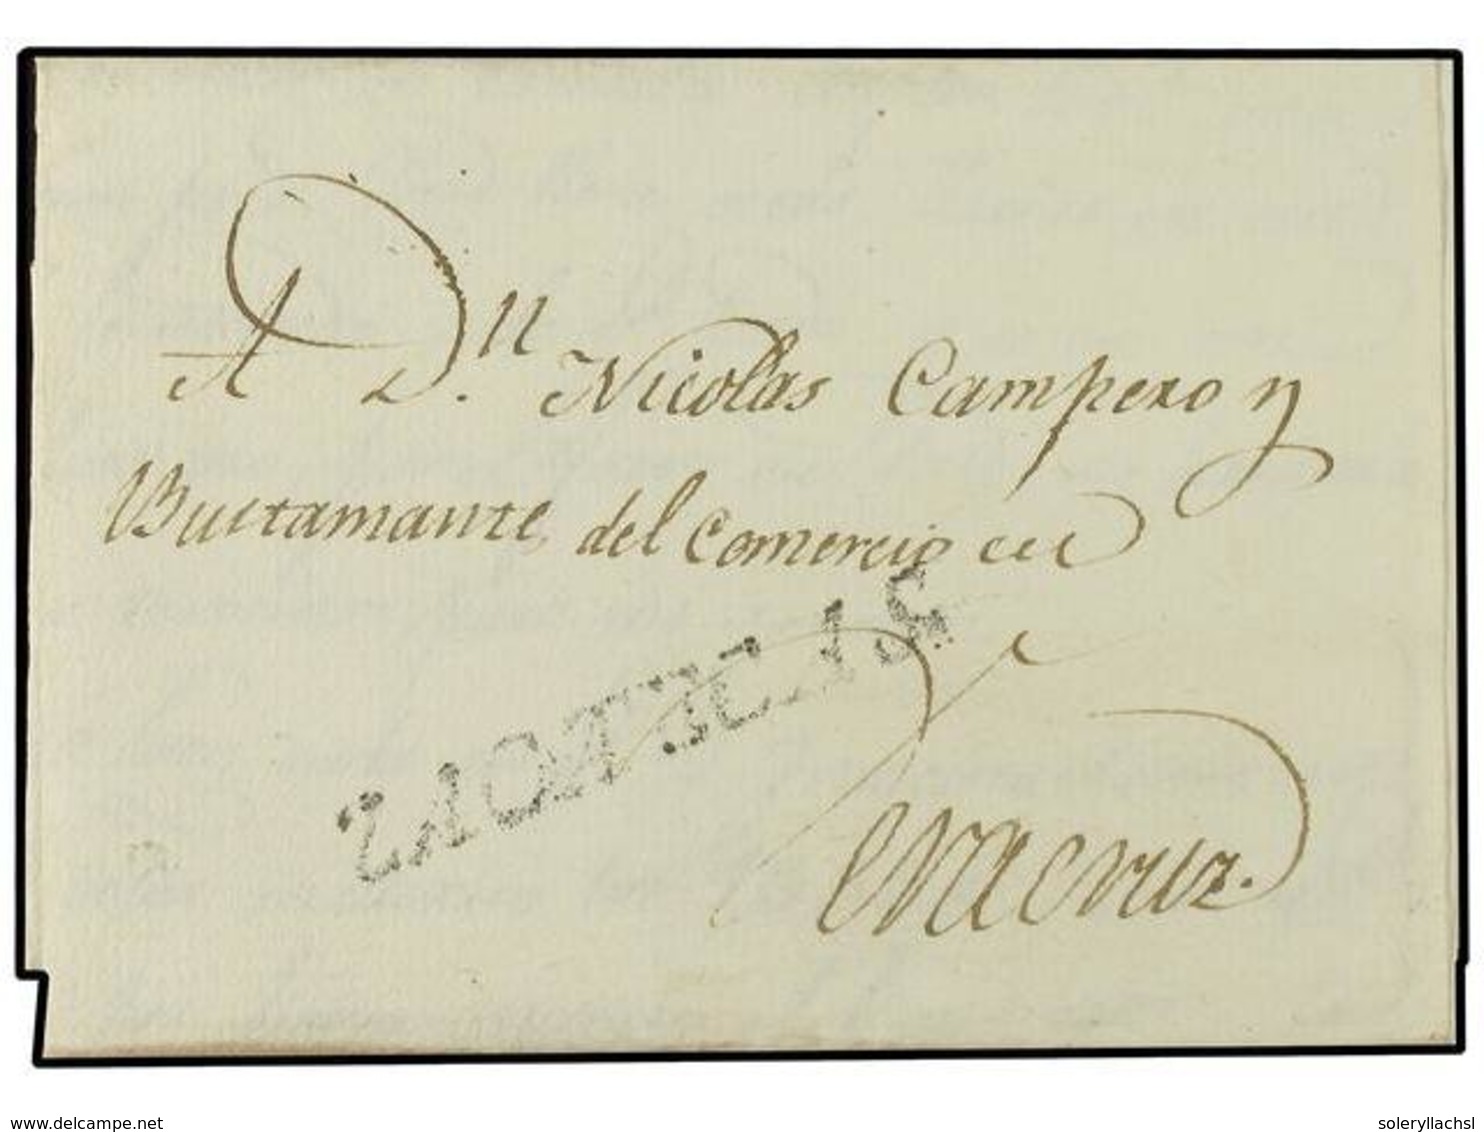 A Dn. Nicolas Campero y
Bustamante, del Comercio en
ZACATECAS
Veracruz.
www.delcampe.net
soleryllachsl